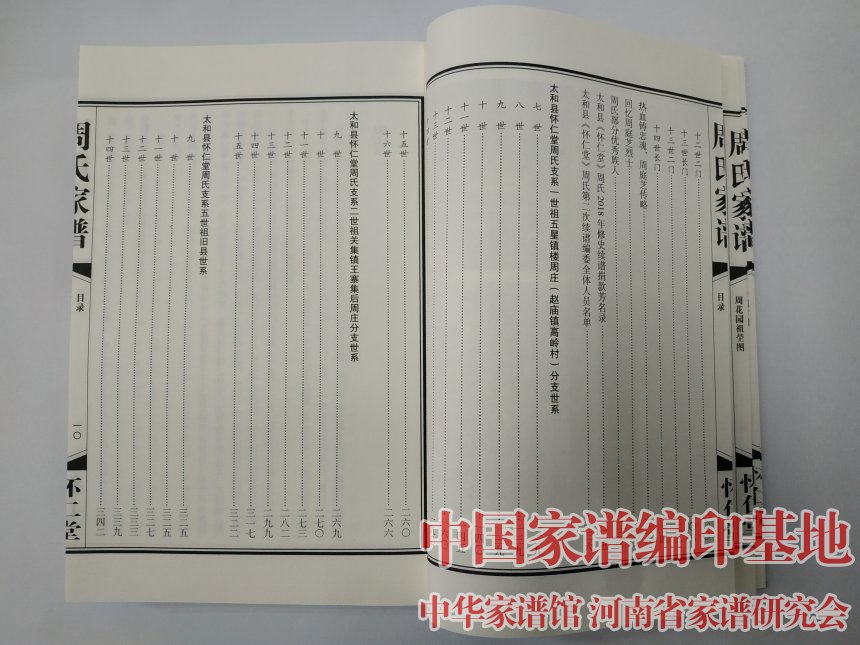 周氏家谱
周花园祖茔图
周氏家谱
目录
十二世二门
十三世长门
十三世二门
十四世长门
热血铸忠魂，周庭芝传略
回忆周庭芝烈士
周氏部分优秀族人
太和县《怀仁堂》周氏2018年修史续谱捐款芳名录
太和县《怀仁堂》周氏第二次续谱编委全体人员名单
太和县怀仁堂周氏支系一世祖五星镇楼周庄（赵庙镇高岭村）分支世系
七世
八世
九世
十世
十一世
十二世
十三世
十五世 二六〇
十六世 二六六
太和县怀仁堂周氏支系二世祖关集镇王寨集后周庄分支世系
九世 二六九
十世 二七〇
十一世 二七三
十二世 二八二
十三世 二九九
十四世 三一七
十五世 三二二
太和县怀仁堂周氏支系五世祖旧县世系
九世 三二五
十世 三二五
十一世 三二七
十二世 三三〇
十三世 三三九
十四世 三四二
周氏家谱
目录
一〇
怀仁堂
中国家谱编印基地
中华家谱馆 河南省家谱研究会